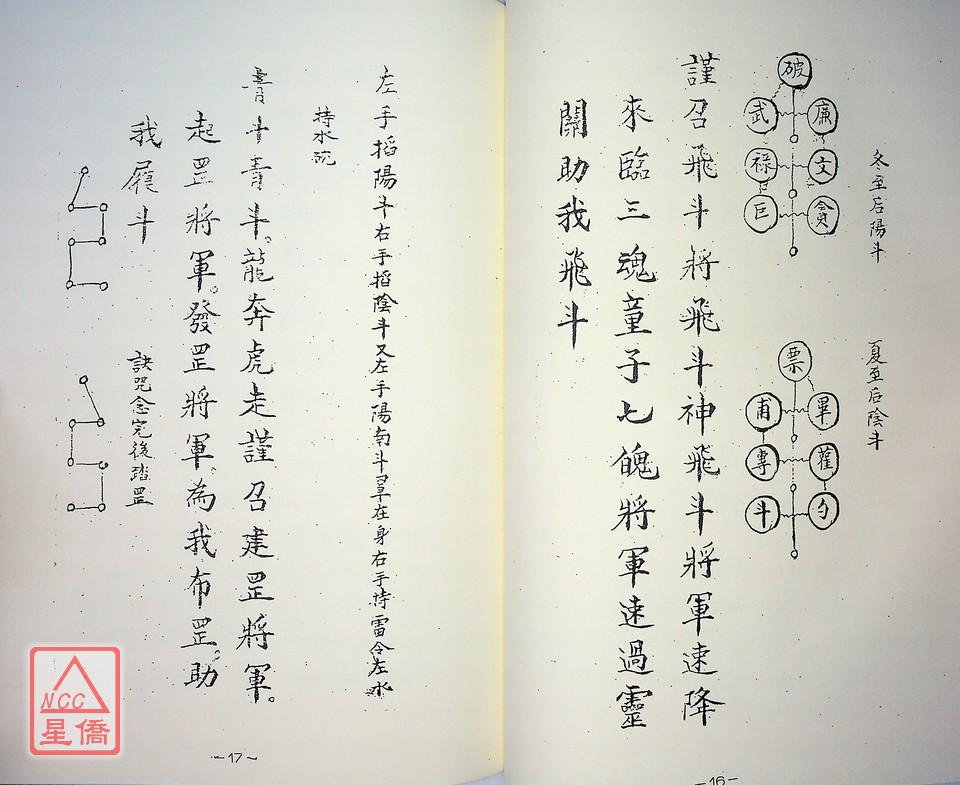 冬至后陽斗
破
武 廉
祿 文
巨 貪
夏至后陰斗
票
甫 畢
專 雚
斗 勺
謹召飛斗將飛斗神飛斗將軍速降
來臨三魂童子七魄將軍速過靈
關助我飛斗
-16-
左手搯陽斗右手搯陰斗又左手陽南斗罩在身右手持雷令左水
持水碗
斗青斗。龍奔虎走謹召建罡將軍。
起罡將軍。發罡將軍。為我布罡。助
我履斗
訣咒念完後踏罡
-17-
NCC
星僑